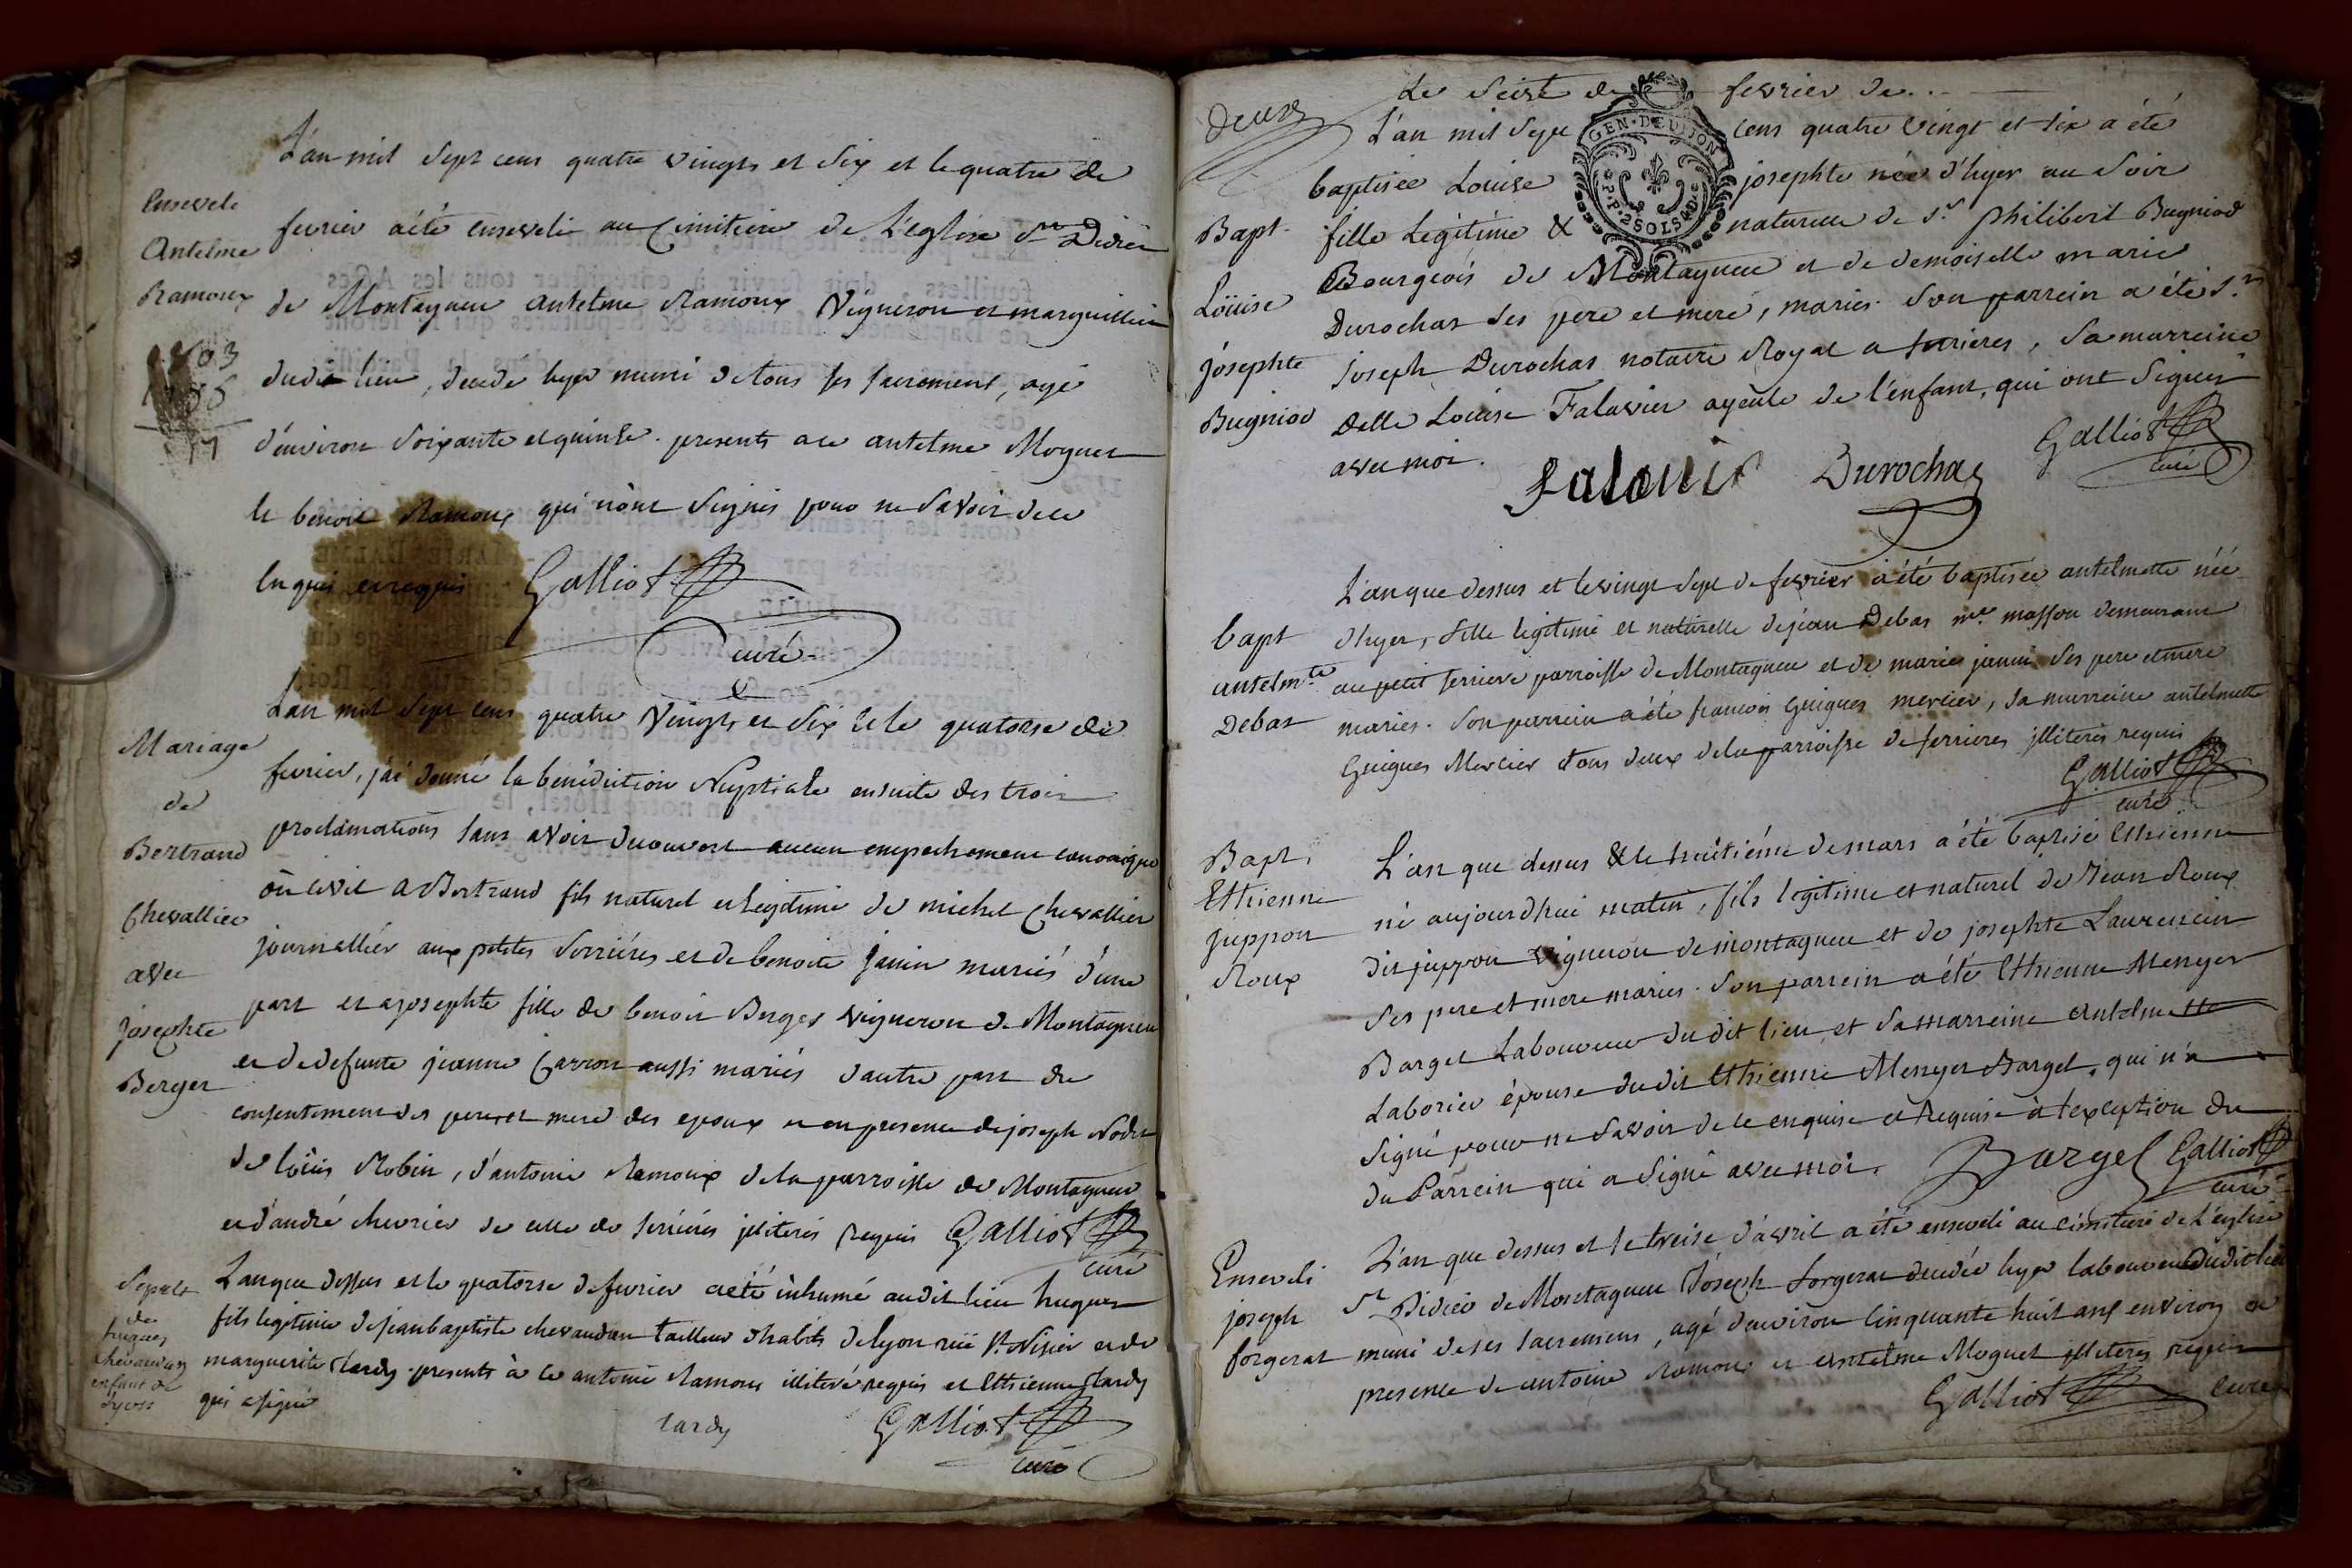 L'an mil sept cens quatre vingts et six et le quatre de
Enseveli
Antelme
Ramoux
fevrier a été enseveli au Cimitiere de L'église St Didier
de Montagneu antelme Ramoux Vigneron et marguillier
dudit lieu, decedé hyer muni de tous ses sacrement, agé
d'environ soixante et quinse. presents a ce antelme Moguet
et benoit Ramoux qui n'ont signés pour ne savoir de ce
enquis et requis Galliot
curé
Mariage
de
Bertrand
Chevallier
avec
josephte
Berger
L'an mil sept cens quatre Vingts et six et le quatorse de
fevrier, j'ai donné la bénédiction Nuptiale ensuite des trois
proclamations sans avoir decouvert aucun empechement canonique
ou civil a Bertrand fils naturel et legitime de michel Chevallier
journallier aux petites Serrières et de benoite janin mariés d'une
part et a josephte fille de benoit Berger vigneron de Montagneu
et de defunte jeanne Carron aussi mariés d'autre part du
consentement des pere et mere des epoux et en presence de joseph
de loüis Robin, d'antoine Ramoux de la parroisse de Montagneu
et d'andré chevrier de celle de serrières illiterés requis Galliot
curé
Sepult
de
hugues
chevaudan
enfant de
Lyon
L'an que dessus et le quatorse de fevrier a été inhumé audit lieu hugues
fils legitime de jean baptiste chevaudan tailleur d'habits de lyon rüe St. Nisier et de
marguerite tardy. presents à ce antoine Ramoux illiteré requis et Ethienne tardy
qui a signé
tardy Galliot
curé
Deux
Le seise de fevrier de...
GEN. DE DIJON
P.P. 2 SOLS 4 D
Bapt.
Loüise
josephte
Bugniod
L'an mil sept cens quatre vingt et six a été
baptisée Louise josephte née d'hyer au soir
fille Legitime & naturelle de sr philibert Bugniod
Bourgeois de Montagneu et de demoiselle marie
Durochat ses pere et mere, mariés. Son parrein a été sr
joseph Durochat notaire Royal a serrieres, sa marreine
Delle Louise Falavier ayeule de l'enfant, qui ont signés
avec moi. Falavier Durochat Galliot
curé
bapt
antelmte
Debat
L'an que dessus et le vingt sept de fevrier a été baptisée antelmette née
d'hyer, fille legitime et naturelle de jean Debat me. masson demeurant
au petit serriere parroisse de Montagneu et de marie janin ses pere et mere
mariés. Son parrein a été francois Guigues mercier, sa marreine antelmette
Guigues Mercier tous deux de la parroisse de serrieres illiterés requis
Galliot
curé
Bapt.
Ethienne
juppon
Roux
L'an que dessus & le huitième de mars a été baptisé Ethienne
né aujourdhui matin, fils legitime et naturel de Jean Roux
dit juppon vigneron de montagneu et de josephte Laurencin
ses pere et mere mariés. Son parrein a été Ethienne Menger
Barget Laboureur du dit lieu, et sa marreine antelmette
Laborier épouse dudit Ethienne Menger Barget, qui n'a
signé pour ne savoir de ce enquise et requise à l'exception du
du Parrein qui a signé avec moi. Barget Galliot
curé
Enseveli
joseph
forgerat
L'an que dessus et le treise d'avril a été enseveli au cimitiere de L'eglise
St Didier de Montagneu Joseph forgerat decedé hyer laboureur dudit lieu
muni de ses sacremens, agé d'environ Cinquante huit ans environ en
presence de antoine Ramoux et antelme Moguet illiterés requis
Galliot curé